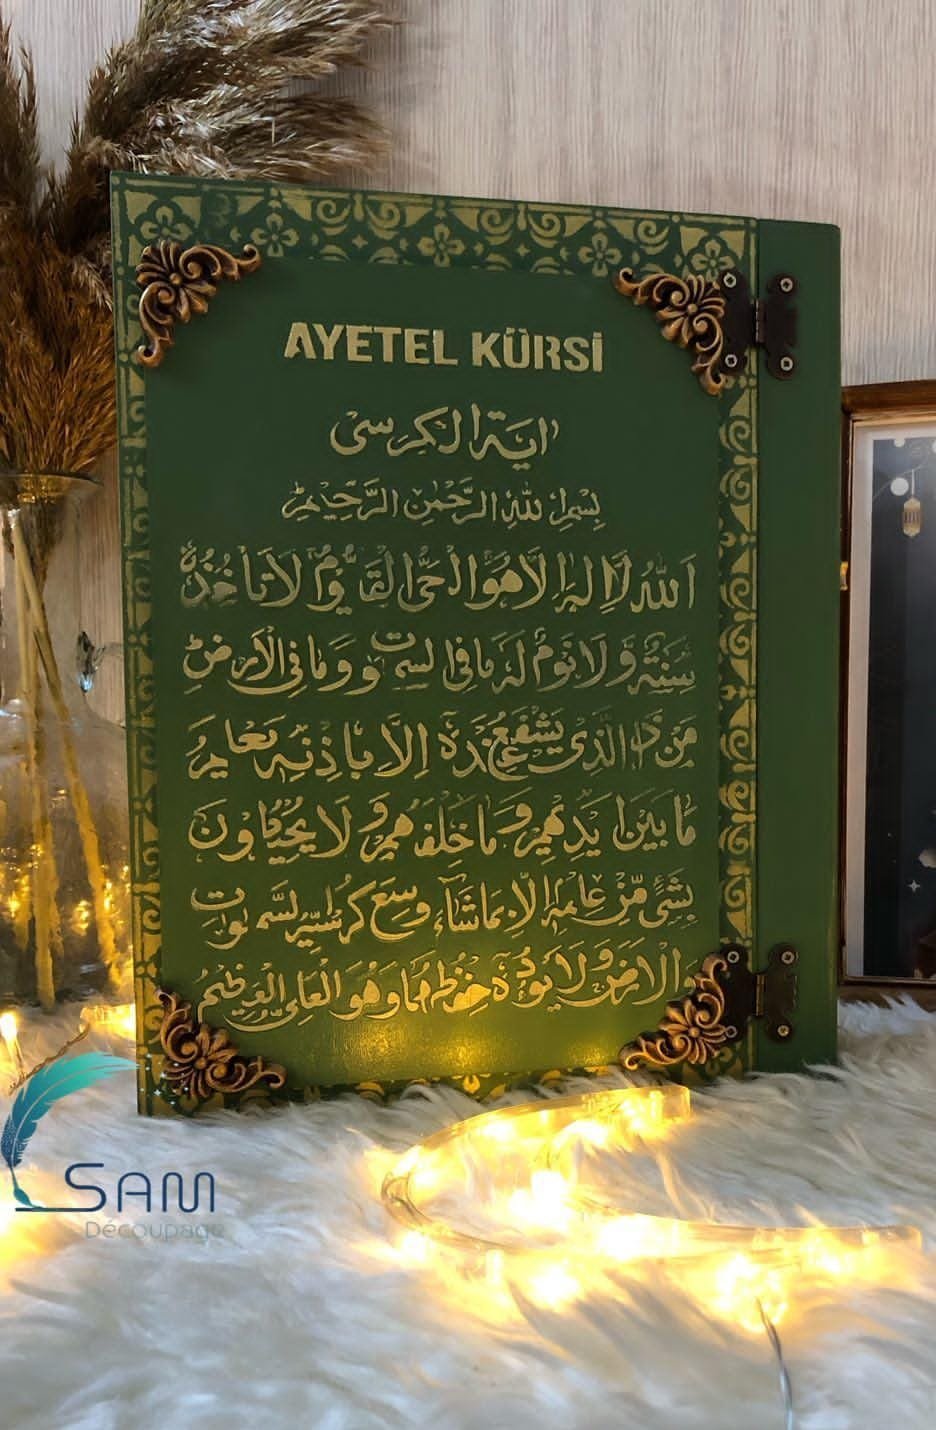 AYETEL KÜRSİ
اية الكرسى
بِسْمِ اللهِ الرَّحْمٰنِ الرَّحِيْمِ
اَللهُ لَا اِلٰهَ اِلَّا هُوَ الْحَىُّ الْقَيُّوْمُ لَا تَاْخُذُهٗ
سِنَةٌ وَّلَا نَوْمٌ لَهٗ مَا فِى السَّمٰوٰتِ وَمَا فِى الْاَرْضِ
مَنْ ذَا الَّذِىْ يَشْفَعُ عِنْدَهٗ اِلَّا بِاِذْنِهٖ يَعْلَمُ
مَا بَيْنَ اَيْدِيْهِمْ وَمَا خَلْفَهُمْ وَلَا يُحِيْطُوْنَ
بِشَىْءٍ مِّنْ عِلْمِهٖ اِلَّا بِمَا شَآءَ وَسِعَ كُرْسِيُّهُ السَّمٰوٰتِ
وَالْاَرْضَ وَلَا يَـُٔوْدُهٗ حِفْظُهُمَا وَهُوَ الْعَلِىُّ الْعَظِيْمُ
SAM
Découpage